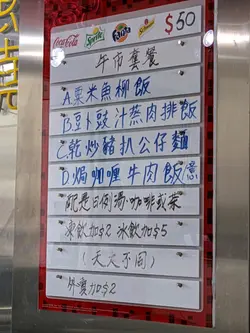 Coca-Cola Sprite Fanta $50
午市套餐
A.粟米魚柳飯
B.豆卜豉汁蒸肉排飯
C.乾炒豬扒公仔麵
D.焗咖喱牛肉飯
配是日例湯.咖啡或茶
凍飲加$2 冰飲加$5
(天天不同)
外賣加$2